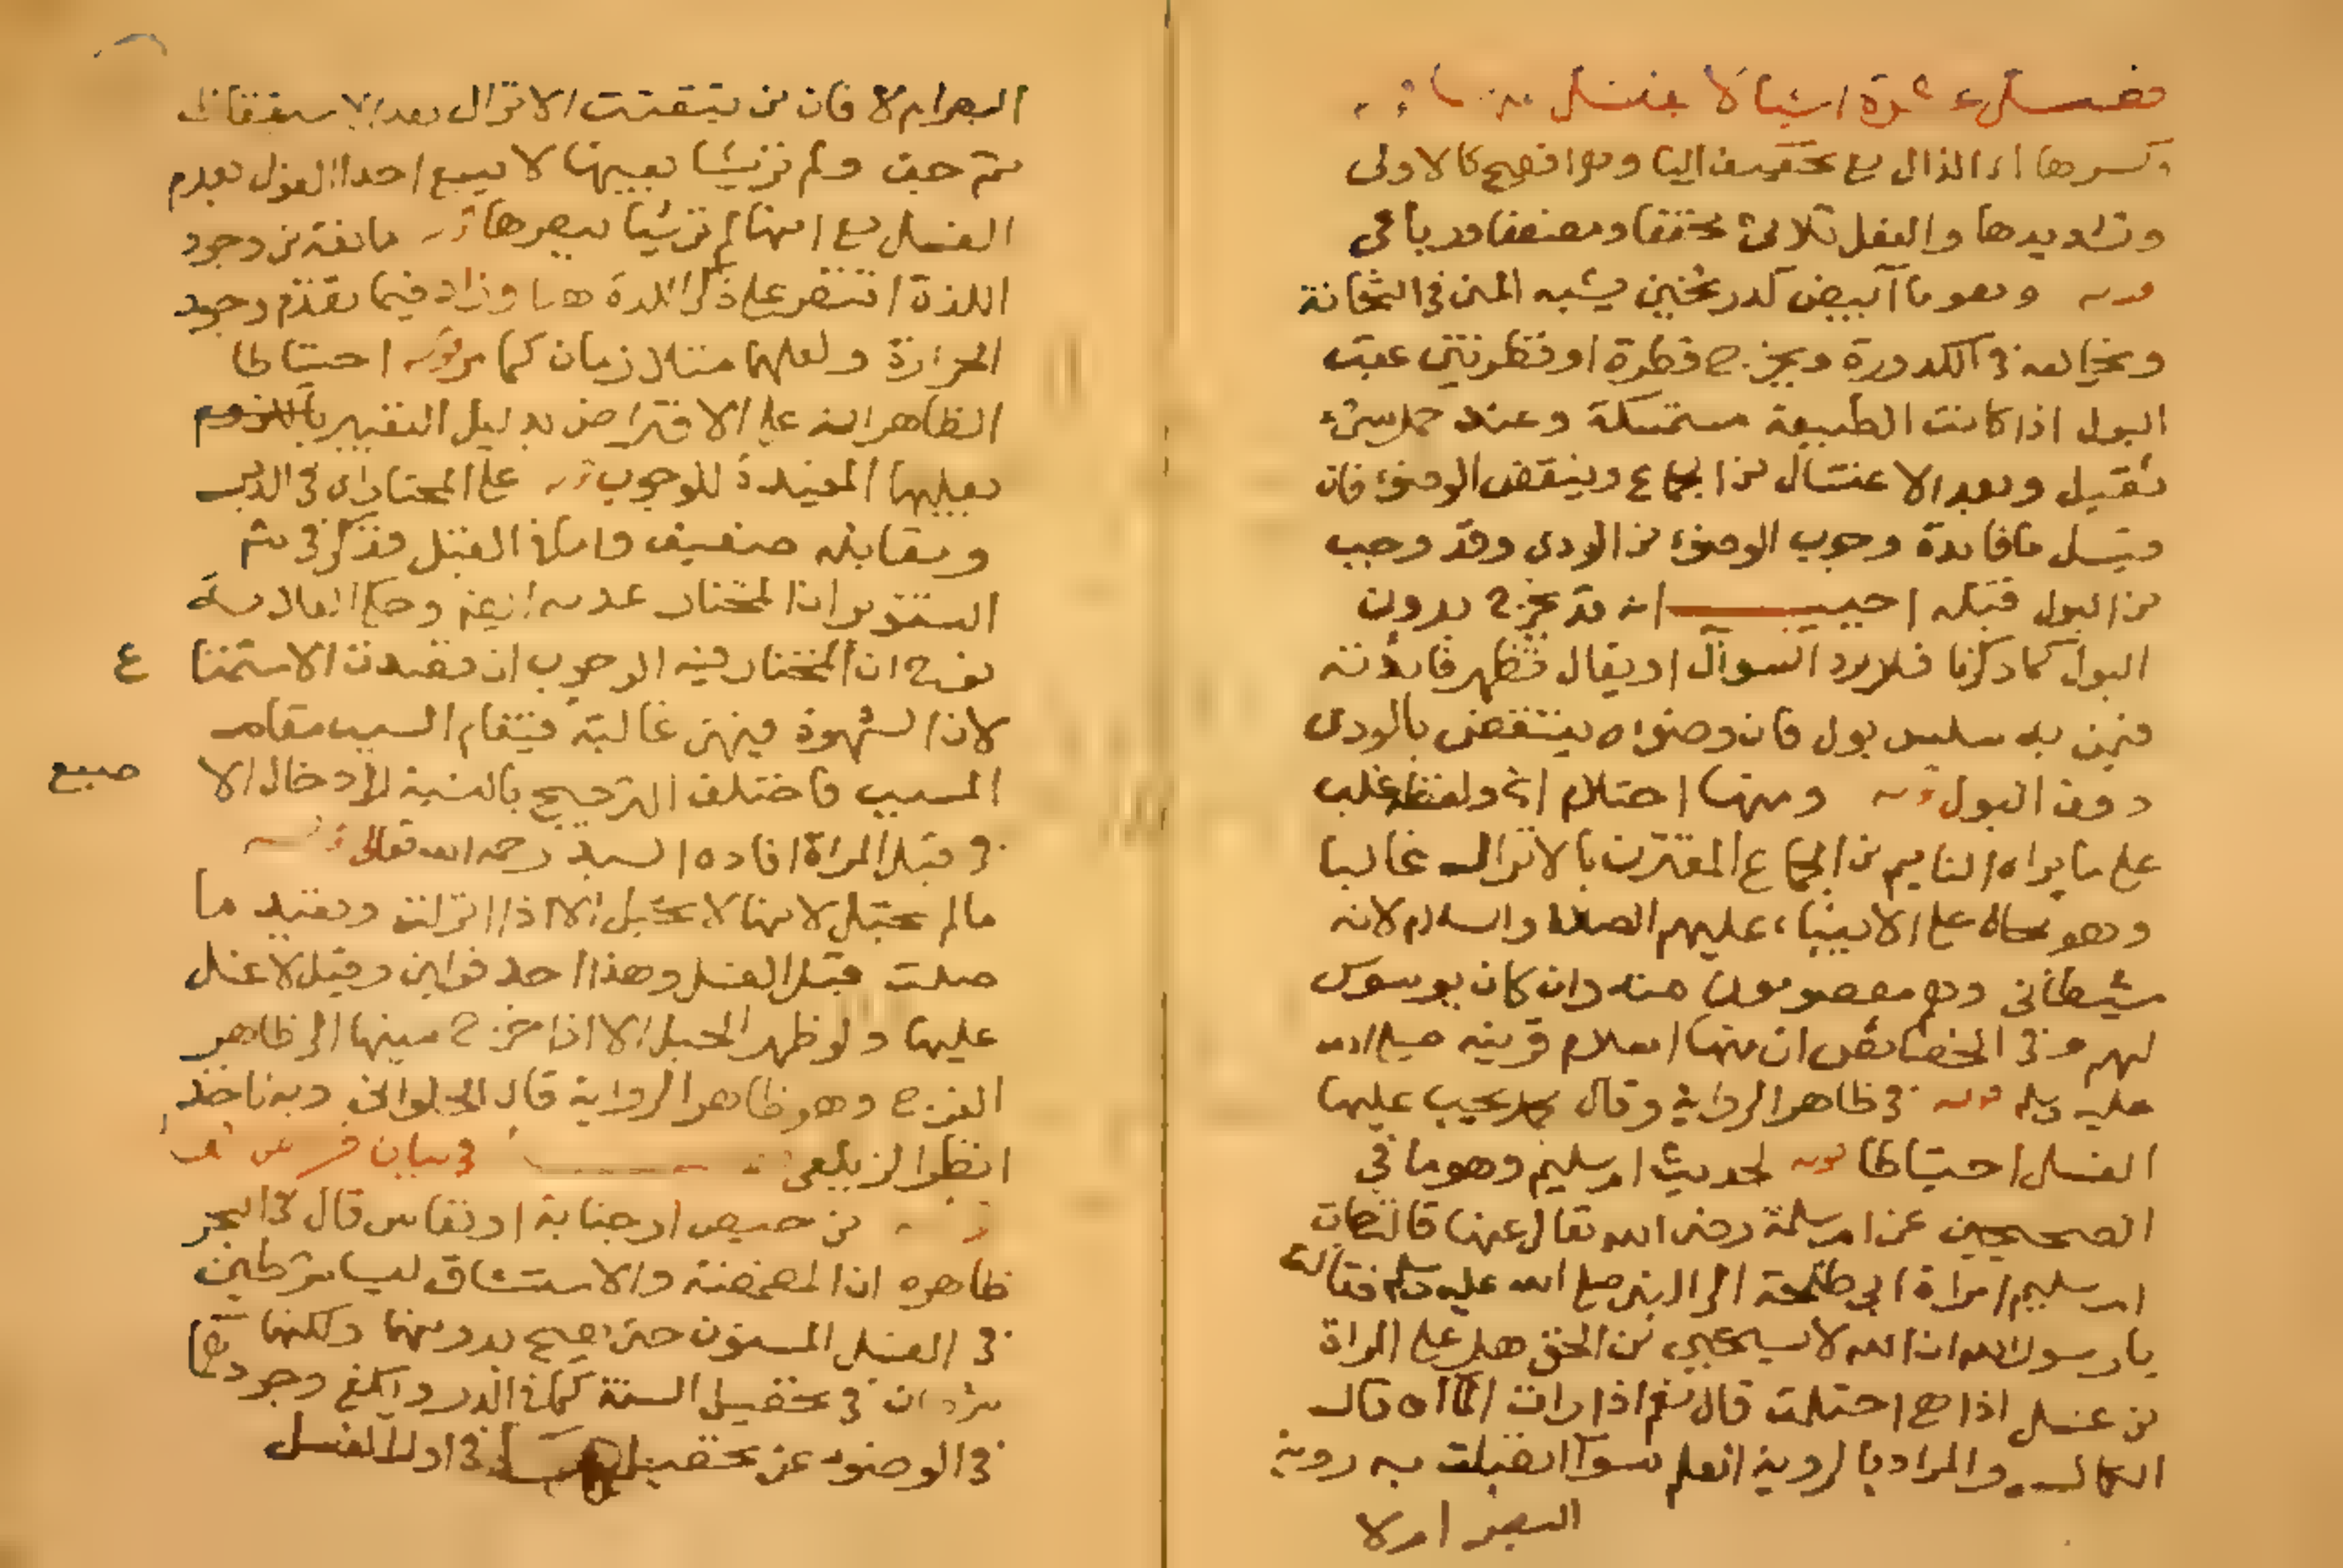 فصل عشرة اشيا لا يغتسل منها
وكسرها اى الذال مع تخفيف اليا وهو افصح كالاولى
وتشديدها والفعل ثلاثى مخففا ومضعفا ورباعى
قوله وهو ما ابيض كدر ثخين يشبه المنى فى الثخانة
ويخالفه فى الكدورة ويخرج قطرة او قطرتين عقب
البول اذا كانت الطبيعة مستمسكة وعند حمل شىء
ثقيل وبعد الاغتسال من الجماع وينقض الوضوء فان
قيل ما فايدة وجوب الوضوء من الودى وقد وجب
من البول قبله اجيب انه قد يخرج بدون
البول كما ذكرنا فلا يرد السوال او يقال تظهر فايدته
فيمن به سلس بول فان وضوءه ينتقض بالودى
دون البول قوله ومنها احتلام الخ ولفظه غلب
على ما يراه النايم من الجماع المقترن بالانزال غالبا
وهو محال على الانبياء عليهم الصلاة والسلام لانه
شيطانى وهم معصومون منه وان كان يوسوس
لهم وفى الخصائص ان منها اسلام قرينه صلى الله
عليه وسلم قوله فى ظاهر الرواية وقال محمد يجب عليها
الغسل احتياطا قوله لحديث ام سليم وهو ما فى
الصحيحين عن ام سلمة رضى الله تعالى عنها قالت جات
ام سليم امراة ابى طلحة الى النبى صلى الله عليه وسلم فقالت
يا رسول الله ان الله لا يستحيى من الحق هل على المراة
من غسل اذا هى احتلمت قال نعم اذا رات الماء قال
الكمال والمراد بالروية العلم سوا اتصلت به روية
البصر ام لا
البصر ام لا فان من تيقنت الانزال بعد الاستيقاظ
ثم جفت ولم تر شيا بعينها لا يسع احدا القول بعدم
الغسل مع انها لم تر شيا ببصرها قوله مانعة من وجود
اللذة اقتصر على ذكر اللذة هنا وزاد فيما تقدم وجود
الحرارة ولعلهما متلازمان كما مر قوله احتياطا
الظاهر انه على الافتراض بدليل التعبير
بعليهما المفيدة للوجوب قوله على المختار اى فى الدبر
ومقابله ضعيف واما فى القبل فذكر فى شرح
التنوير ان المختار عدمه انتهى وحكى العلامة
نوح ان المختار فيه الوجوب ان قصدت الاستمتاع
لان الشهوة فيهن غالبة فيقام السبب مقام
المسبب فاختلف الترجيح بالنسبة لادخال الاصبع
فى قبل المراة افاده السيد رحمه الله تعالى قوله
ما لم تحبل لانها لا تحبل الا اذا انزلت وتعيد ما
صلت قبل الغسل وهذا احد قولين وقيل لا غسل
عليها ولو ظهر الحبل الا اذا خرج منيها الى ظاهر
الفرج وهو ظاهر الرواية قال الحلوانى وبه ناخذ
انظر الزيلعى فى بيان فرايض
قوله من حيض او جنابة او نفاس قال فى البحر
ظاهره ان المضمضة والاستنشاق ليسا شرطين
فى الغسل المسنون حتى يصح بدونهما ولكنهما
شرطان فى تحصيل السنة كما فى الدر واكتفى وجودهما
فى الوضوء عن تحصيل فى اول الغسل